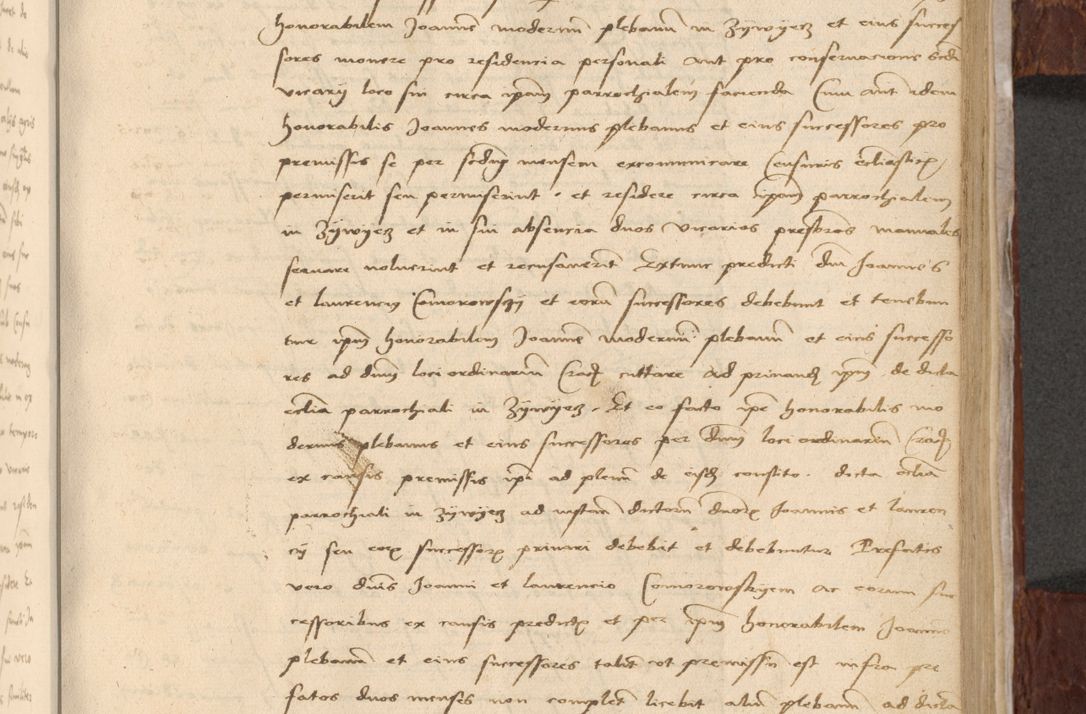 honorabilem Joannē modernū plebanū in Zÿwÿecz et eius succes
sores monere pro residencia personali aut pro conseruacione
vicarij loco sui circa ipam parrochialem facienda Cum aut idem
honorabilis Joannes modernus plebanus et eius successores pro
premissis se per mensem excomunicare Censuris
permiserit seu permiserint et residere circa ipam parrochialem
in Zÿwÿecz et in sui absencia duos vicarios presbros manuales
seruare noluerint et recusauerīt Extunc predicti dni Joannes
et laurencius Comorowskÿ et eorū successores debebunt et tenebun
tur ipm honorabilem Joannē modernū plebanū et eius successo
res ad dnm loci ordinariū Crac cittare ad priuandū ipm de dicta
ecclia parrochiali in Zÿwÿecz Et eo facto ipe honorabilis mo
dernus plebanus et eius successores per dnm loci ordinariū Crac
ex causis premissis ipi ad plenū de eisdē constito dicta ecclia
parrochiali in Zÿwÿecz ad instam dictorū dnorꝝ Joannis et lauren
cij seu eorꝝ successorꝝ priuari debebit et debebuntur Prefatis
vero dnis Joanni et laurencio Comorowskÿ ac eorum suc
cessoribus ex causis predictis et per ipm honorabilem Joannē
plebanū et eius successores talit vt premissū est infra pre
fatos duos menses non complet licebit aliū plebanū ad dictā